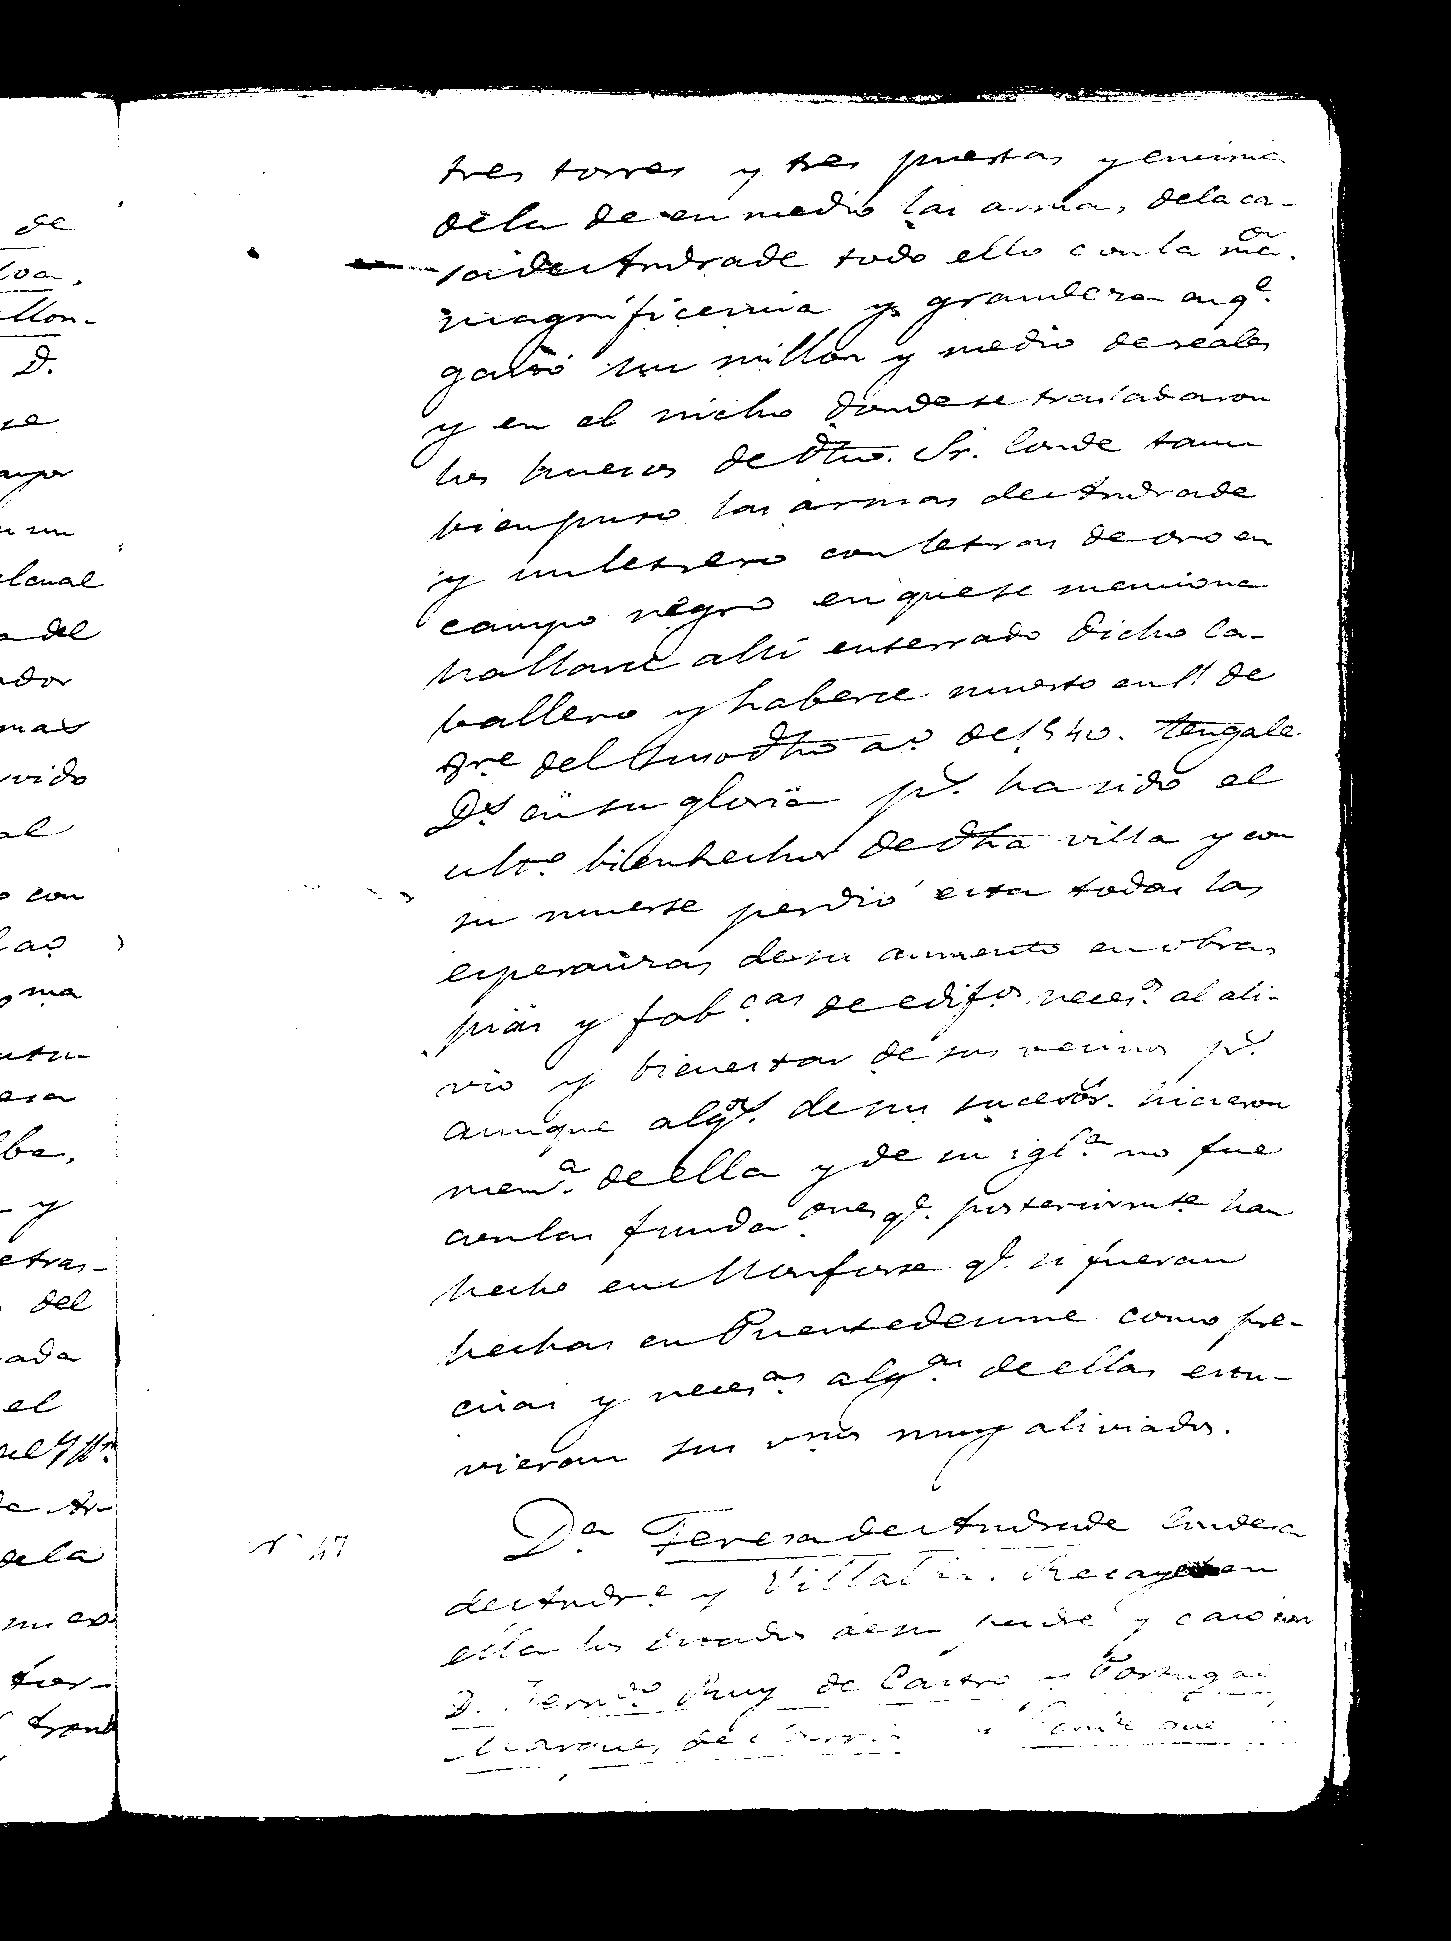 de
loa,
llon-
D.
se
ayor
n un
lcual
a del
ador
mas
rvido
al
o con
ma
era
lba,
- y
etras-
del
ada
el
de An-
de la
su ex
tor-
tres torres y tres puertas y encima
dela de en medio las armas, dela ca-
sa de Andrade todo ello con la mor.
magnificencia y grandeza en qe.
gastó un millon y medio de reales
y en el nicho donde se trasladaron
los huesos de dho. Sr. Conde tam
bien puso las armas de Andrade
y un letrero con letras de oro en
campo negro en que se menciona
hallarse alli enterrado dicho Ca-
ballero y haberse muerto en 1º de
del smo dho ao de 1540. tengale
Ds. en su gloria ps. ha sido el
ulto. bienhechor de dha villa y con
su muerte perdió esta todas las
esperanzas de su aumento en obras
pias y fabcas de edifos neces. al ali-
vio y bienestar de sus vecinos ps.
aunque algs. de sus sucesors. hicieron
mema. de ella y de su igla. no fue
con las fundaones qe. posteriormte han
hecho en Monforte qe. si fueran
hechas en Puentedeume como pre-
cisas y necesas algas. de ellas estu-
vieran sus vnos muy aliviados.
Nº 47
Da Teresa de Andrade Condesa
de Andre y Villalba. Recayeron en
ella los Estados de su padre y casó con
D. Ferndo. Ruiz de Castro y Portugal
Marques de Sarria y Conde que